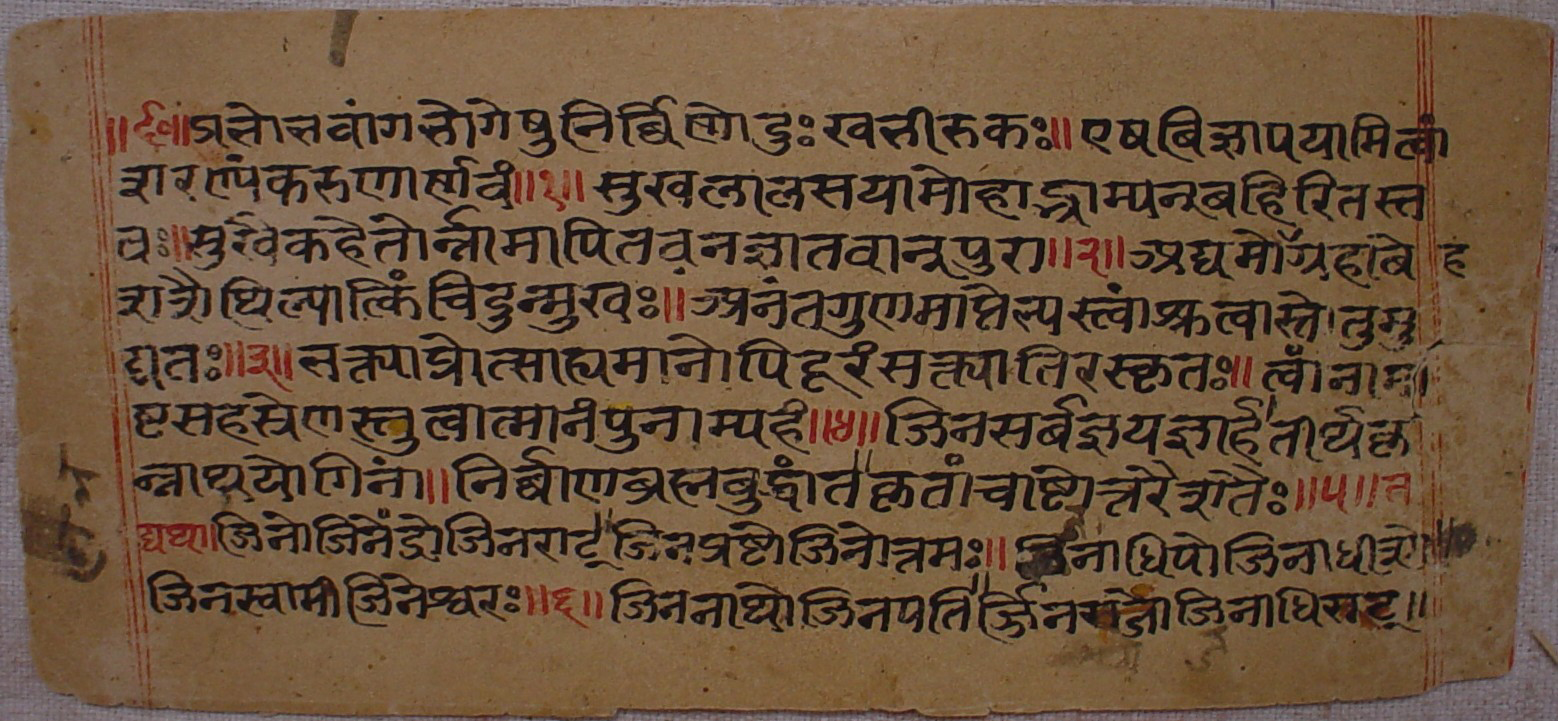 ॥६०॥ प्रभो भवांगभोगेषु निर्विण्णो दुःखभीरुकः॥ एष बिज्ञापयामि त्वां
शरण्यं करुणार्णवं॥१॥ सुखलालसया मोहाद्भ्राम्यन् बहिरितस्त
तः॥ सुखैकहेतोर्न्नामापि तव न ज्ञातवान् पुरा॥२॥ अद्य मोहग्रहाबे
शशैथिल्यात्किंचिदुन्मुखः॥ अनंतगुणमाप्तेभ्यस्त्वां श्रुत्वा स्तोतुमु
द्यतः॥३॥ भक्त्या प्रोत्साह्यमानोपि दूरं सक्त्या तिरस्कृतः॥ त्वां नामा
ष्टसहस्रेण स्तुत्वात्मानं पुनाम्यहं॥४॥ जिनसर्बज्ञयज्ञार्हतीर्थकृ
न्नाथयोगिनां॥ निर्ब्बाणब्रह्मबुद्धांतकृतां चाष्टोत्तरैः शतैः॥५॥ त
द्यथा॥ जिनो जिनेंद्रो जिनराट् जिनप्रष्टो जिनोत्तमः॥ जिनाधिपो जिनाधीशो
जिनस्वामी जिनेश्वरः॥६॥ जिननाथो जिनपतिर्ज्जिनराजो जिनाधिराट्॥